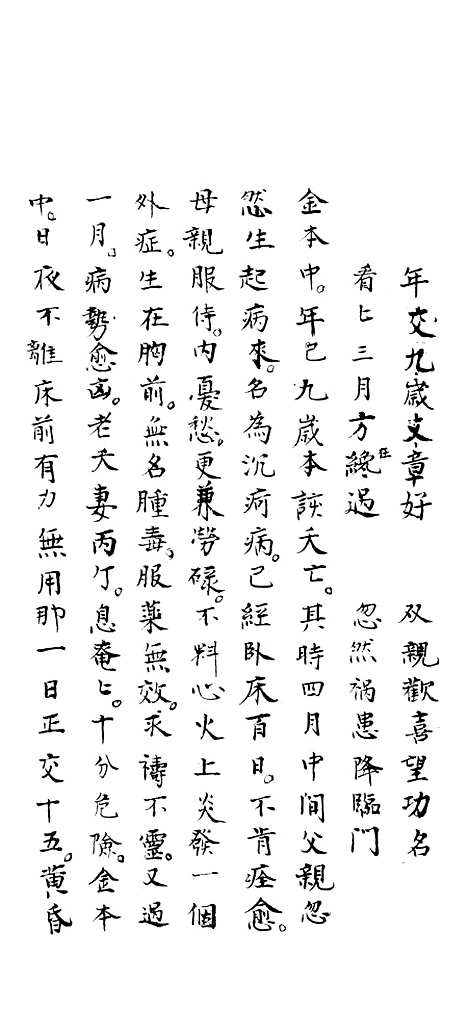 年交九歲文章好　双親歡喜望功名
看匕三月方纔在過　忽然禍患降臨門
金本中。年已九歲本該夭亡。其時四月中间父親忽
愁生起病來。名為沉疴病。已經卧床百日。不肯痊愈。
母親服侍。内憂愁。更兼勞碌。不料心火上炎發一個
外症。生在胸前。無名腫毒。服藥無效。求禱不靈。又過
一月。病勢愈凶。老夫妻両个。息奄匕。十分危險。金本
中。日夜不離床前有力無用那一日正交十五。黄昏